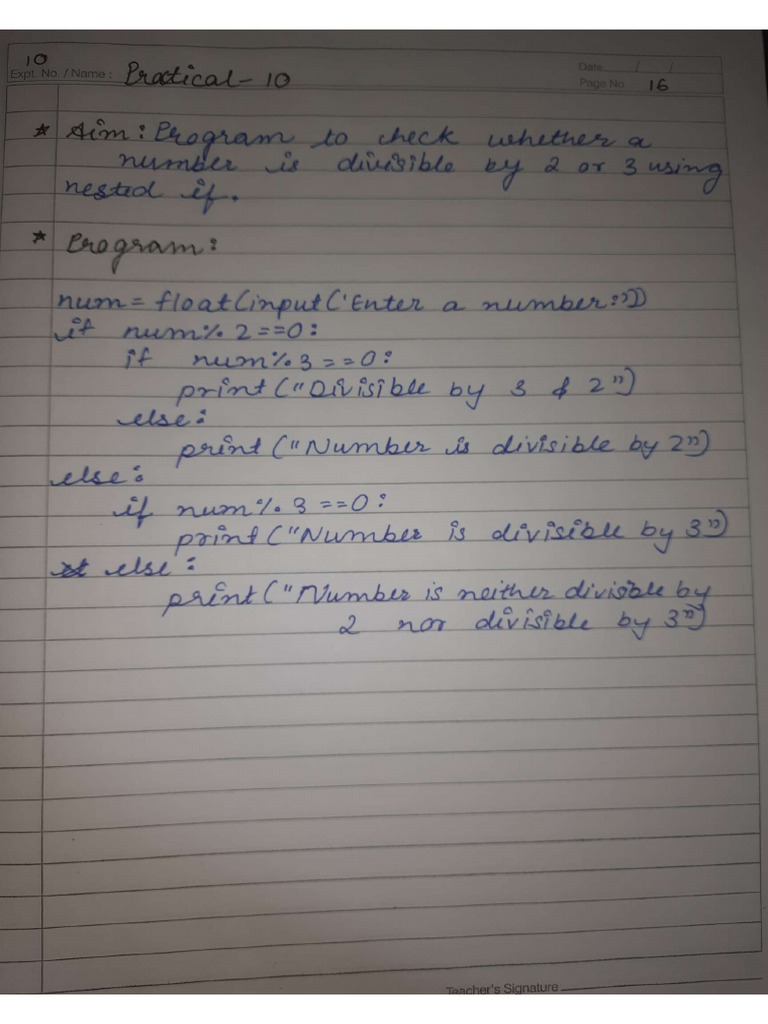 10
Expt. No. / Name : Practical - 10
Date / /
Page No. 16
* Aim : Program to check whether a
number is divisible by 2 or 3 using
nested if.
* Program :
num = float(input('Enter a number:"))
if num % 2 == 0 :
if num % 3 == 0 :
print ("Divisible by 3 & 2")
else :
print ("Number is divisible by 2")
else :
if num % 3 == 0 :
print ("Number is divisible by 3")
else :
print ("Number is neither divisible by
2 nor divisible by 3")
Teacher's Signature